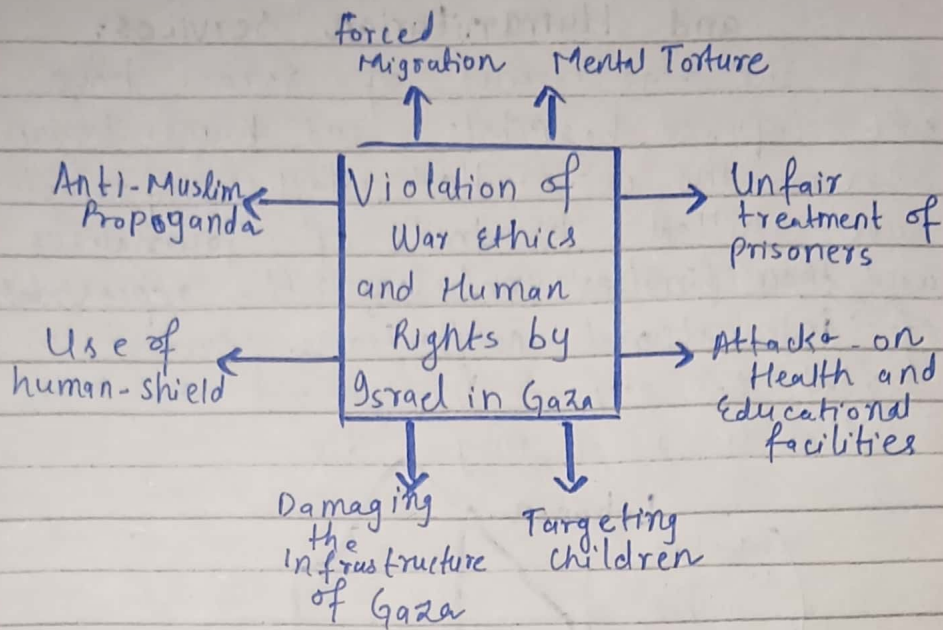 forced
Migration
Mental Torture
Anti-Muslim
Propoganda
Violation of
War Ethics
and Human
Rights by
Israel in Gaza
Unfair
treatment of
prisoners
Use of
human-shield
Attacks on
Health and
Educational
facilities
Damaging
the
infrustructure
of Gaza
Targeting
children